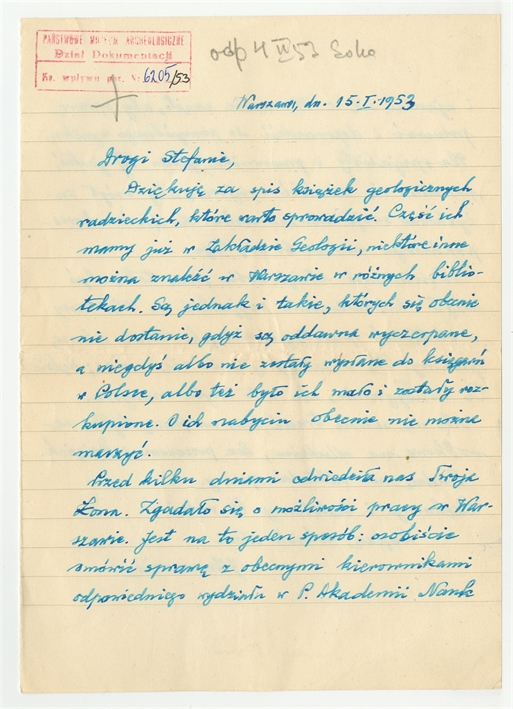 PAŃSTWOWE MUZEUM ARCHEOLOGICZNE
Dział Dokumentacji
Nr. wpływu 6205/53
odp 4 IV 53
Warszawa, dn. 15.I.1953
Drogi Stefanie,
Dziękuję za spis książek geologicznych
radzieckich, które warto sprowadzić. Część ich
mamy już w Zakładzie Geologii, niektóre inne
można znaleść w Warszawie w różnych biblio-
tekach. Są jednak i takie, których się obecnie
nie dostanie, gdyż są oddawna wyczerpane,
a niegdyś albo nie zostały wysłane do księgarń
w Polsce, albo też było ich mało i zostały roz-
kupione. O ich nabyciu obecnie nie można
marzyć.
Przed kilku dniami odwiedziła nas Twoja
Żona. Zgadało się o możliwości pracy w War-
szawie. Jest na to jeden sposób: osobiście
omówić sprawę z obecnymi kierownikami
odpowiedniego wydziału w P. Akademii Nauk